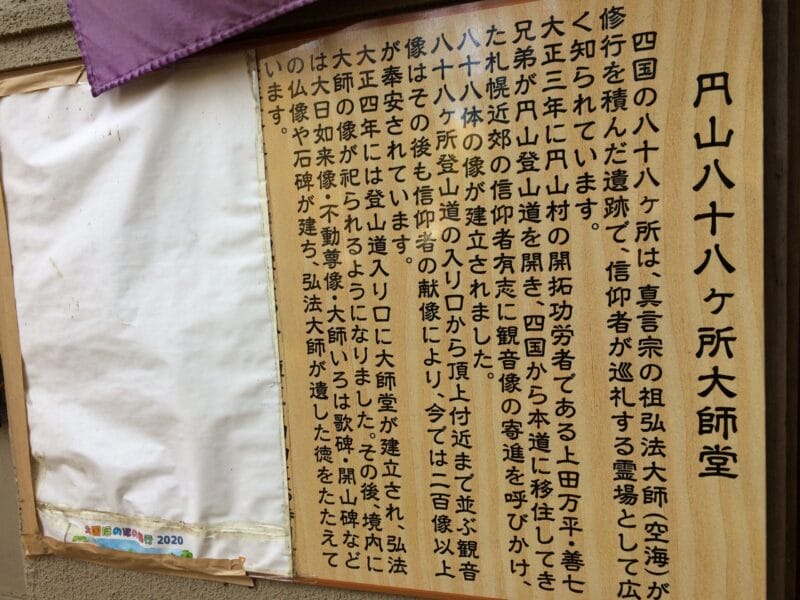 円山八十八ヶ所大師堂
四国の八十八ヶ所は、真言宗の祖弘法大師(空海)が
修行を積んだ遺跡で、信仰者が巡礼する霊場として広
く知られています。
大正三年に円山村の開拓功労者である上田万平・善七
兄弟が円山登山道を開き、四国から本道に移住してき
た札幌近郊の信仰者有志に観音像の寄進を呼びかけ、
八十八体の像が建立されました。
八十八ヶ所登山道の入り口から頂上付近まで並ぶ観音
像はその後も信仰者の献像により、今では二百像以上
が奉安されています。
大正四年には登山道入り口に大師堂が建立され、弘法
大師の像が祀られるようになりました。その後、境内に
は大日如来像・不動尊像・大師いろは歌碑・開山碑など
の仏像や石碑が建ち、弘法大師が遺した徳をたたえて
います。
2020